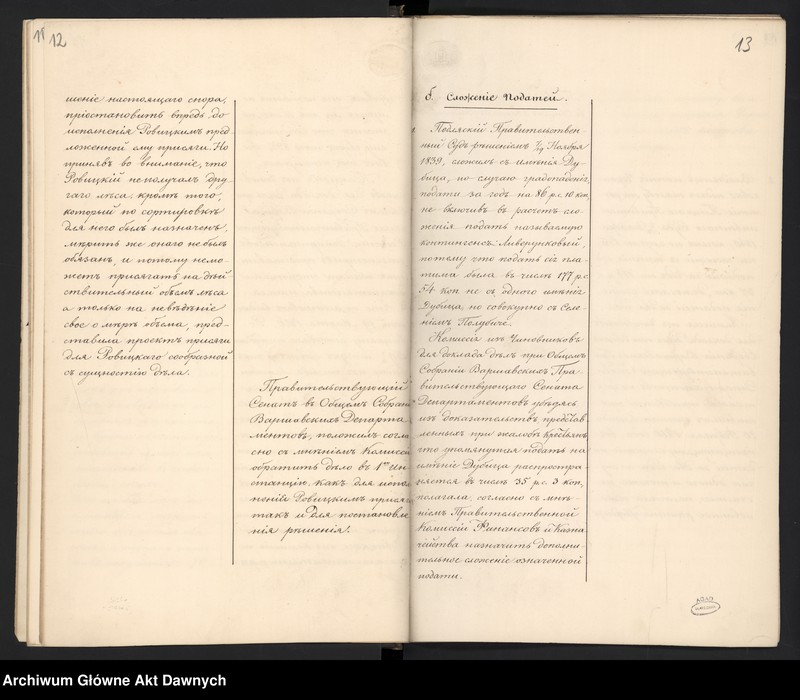 11 12
шеніе настоящаго спора,
пріостановить впредь до
исполненія Ровицкимъ пред
ложенной ему присяги. Но
принявъ во вниманіе, что
Ровицкій не получалъ дру-
гаго лѣса, кромѣ того,
который по сортировкѣ
для него былъ назначенъ,
мѣрить же онаго не былъ
обязанъ, и потому не мо-
жетъ присягать на дѣй
ствительный объемъ лѣса
а только на невѣдѣніе
свое о мѣрѣ объема, пред-
ставила проэктъ присяги
для Ровицкаго сообразной
съ сущностію дѣла.
Правительствующій
Сенатъ въ Общемъ Собран
Варшавскихъ Департа
ментовъ, положилъ согла
сно съ мнѣніемъ Комиссі
обратить дѣло въ 1ую Ин
станцію, какъ для испол
ненія Ровицкимъ присяг
такъ и для постановле
нія рѣшенія.
13
б. Сложеніе Податей.
Подлясскій Правительствен-
ный Судъ рѣшеніемъ 7/19 Ноября
1839, сложилъ съ имѣнія Ду-
бица, по случаю градопадені
подати за годъ на 86 р.с. 10 коп,
не включивъ въ расчетъ сло
женія подать называемую
контингенсъ Ливерунковый,
потому что подать сія пла
тима была въ числѣ 177 рс
54 коп не съ одного имѣнія
Дубица, но совокупно съ Селе-
ніемъ Полубиче.
Комиссія изъ Чиновниковъ
для доклада дѣлъ при Общемъ
Собраніи Варшавскихъ Пра-
вительствующаго Сената
Департаментовъ убѣдясь
изъ доказательствъ представ
ленныхъ при жалобѣ крестьянъ
что упомянутая подать на
имѣніе Дубица распростра-
няется въ числѣ 35 р.с. 3 коп,
полагала, согласно съ мнѣ-
ніемъ Правительственной
Комиссіи Финансовъ и Казна
чейства назначить дополни-
тельное сложеніе означенной
подати.
AGAD
Archiwum Główne Akt Dawnych